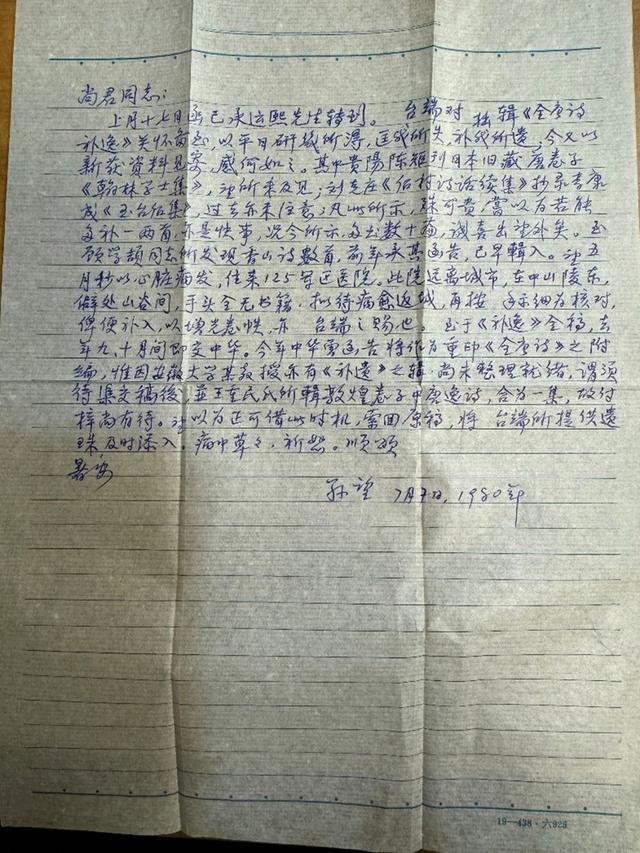 尚君同志：
上月十七日函已承运熙先生转到。台端对拙辑《全唐诗
补逸》关怀备至，以平日研线所得，匡我所失，补我所遗，今又以
新获资料见寄，感何如之。其中贵阳陈矩刊日本旧藏唐卷子
《翰林学士集》，望所未及见；刘克庄《后村诗话续集》抄录李康
成《玉台后集》，过去亦未注意；凡此所示，殊可贵，尝以为若能
多补一两首，亦是快事，况今所示多至数十首，诚喜出望外矣。至
顾学颉同志所发现香山诗数首，前年承其函告，已早辑入。望五
月杪以心脏病发，住来125号区医院。此院远离城市，在中山陵东，
僻处山谷间，手头全无书籍，拟待病愈返城，再按 函示细为核对，
俾便补入，以增光卷帙，亦 台端之赐也。至于《补逸》全稿，去
年九、十月间即交中华。今年中华函告将作为重印《全唐诗》之附
编，惟因安徽大学某教授亦有《补逸》之辑，尚未整理就绪，谓须
待渠交稿后，并王重民氏所辑敦煌卷子中唐逸诗，合为一集，故付
梓尚有待。望以为正可借此时机，索回原稿，将 台端所提供遗
珠及时添入。病中草草，祈恕。顺颂
暑安
孙望 7月7日，1980年
19—438·六929